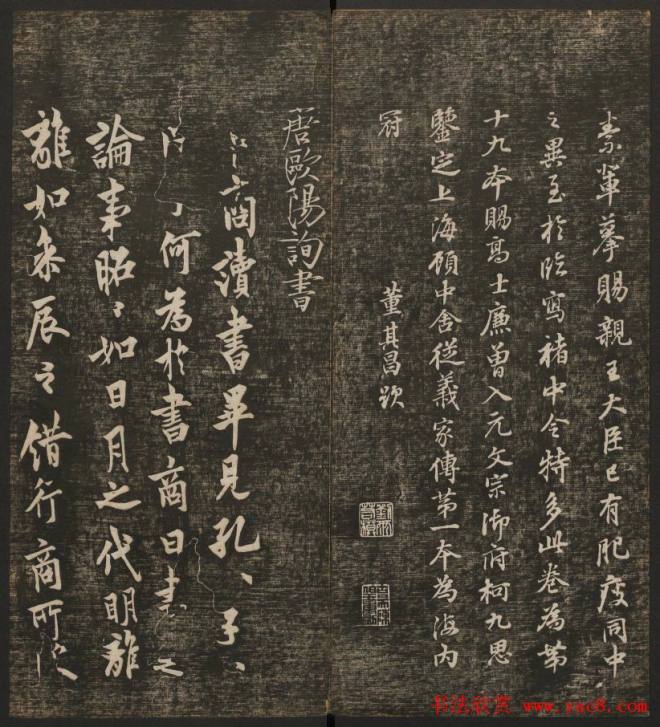 素輩摹賜親王大臣已有肥瘦同中
之異至於臨寫褚中令特多此卷為第
十九本賜高士廉曾入元文宗御府柯九思
鑒定上海顧中舍從義家傳第一本為海内
冠
董其昌題
唐歐陽詢書
商讀書畢見孔〻子〻
何為於書商曰書之
論事昭〻如日月之代明離
離如參辰之錯行商所
书法欣赏 www.yac8.com